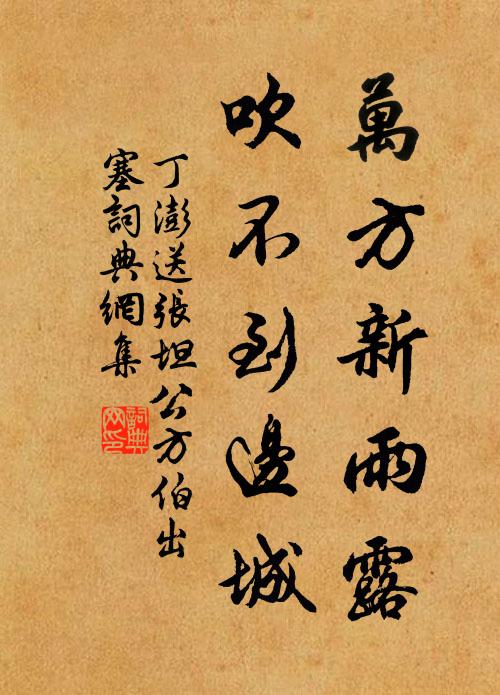 萬方新雨露
吹不到邊城
丁澎送張坦公方伯出
塞詞典網集
詞典网印